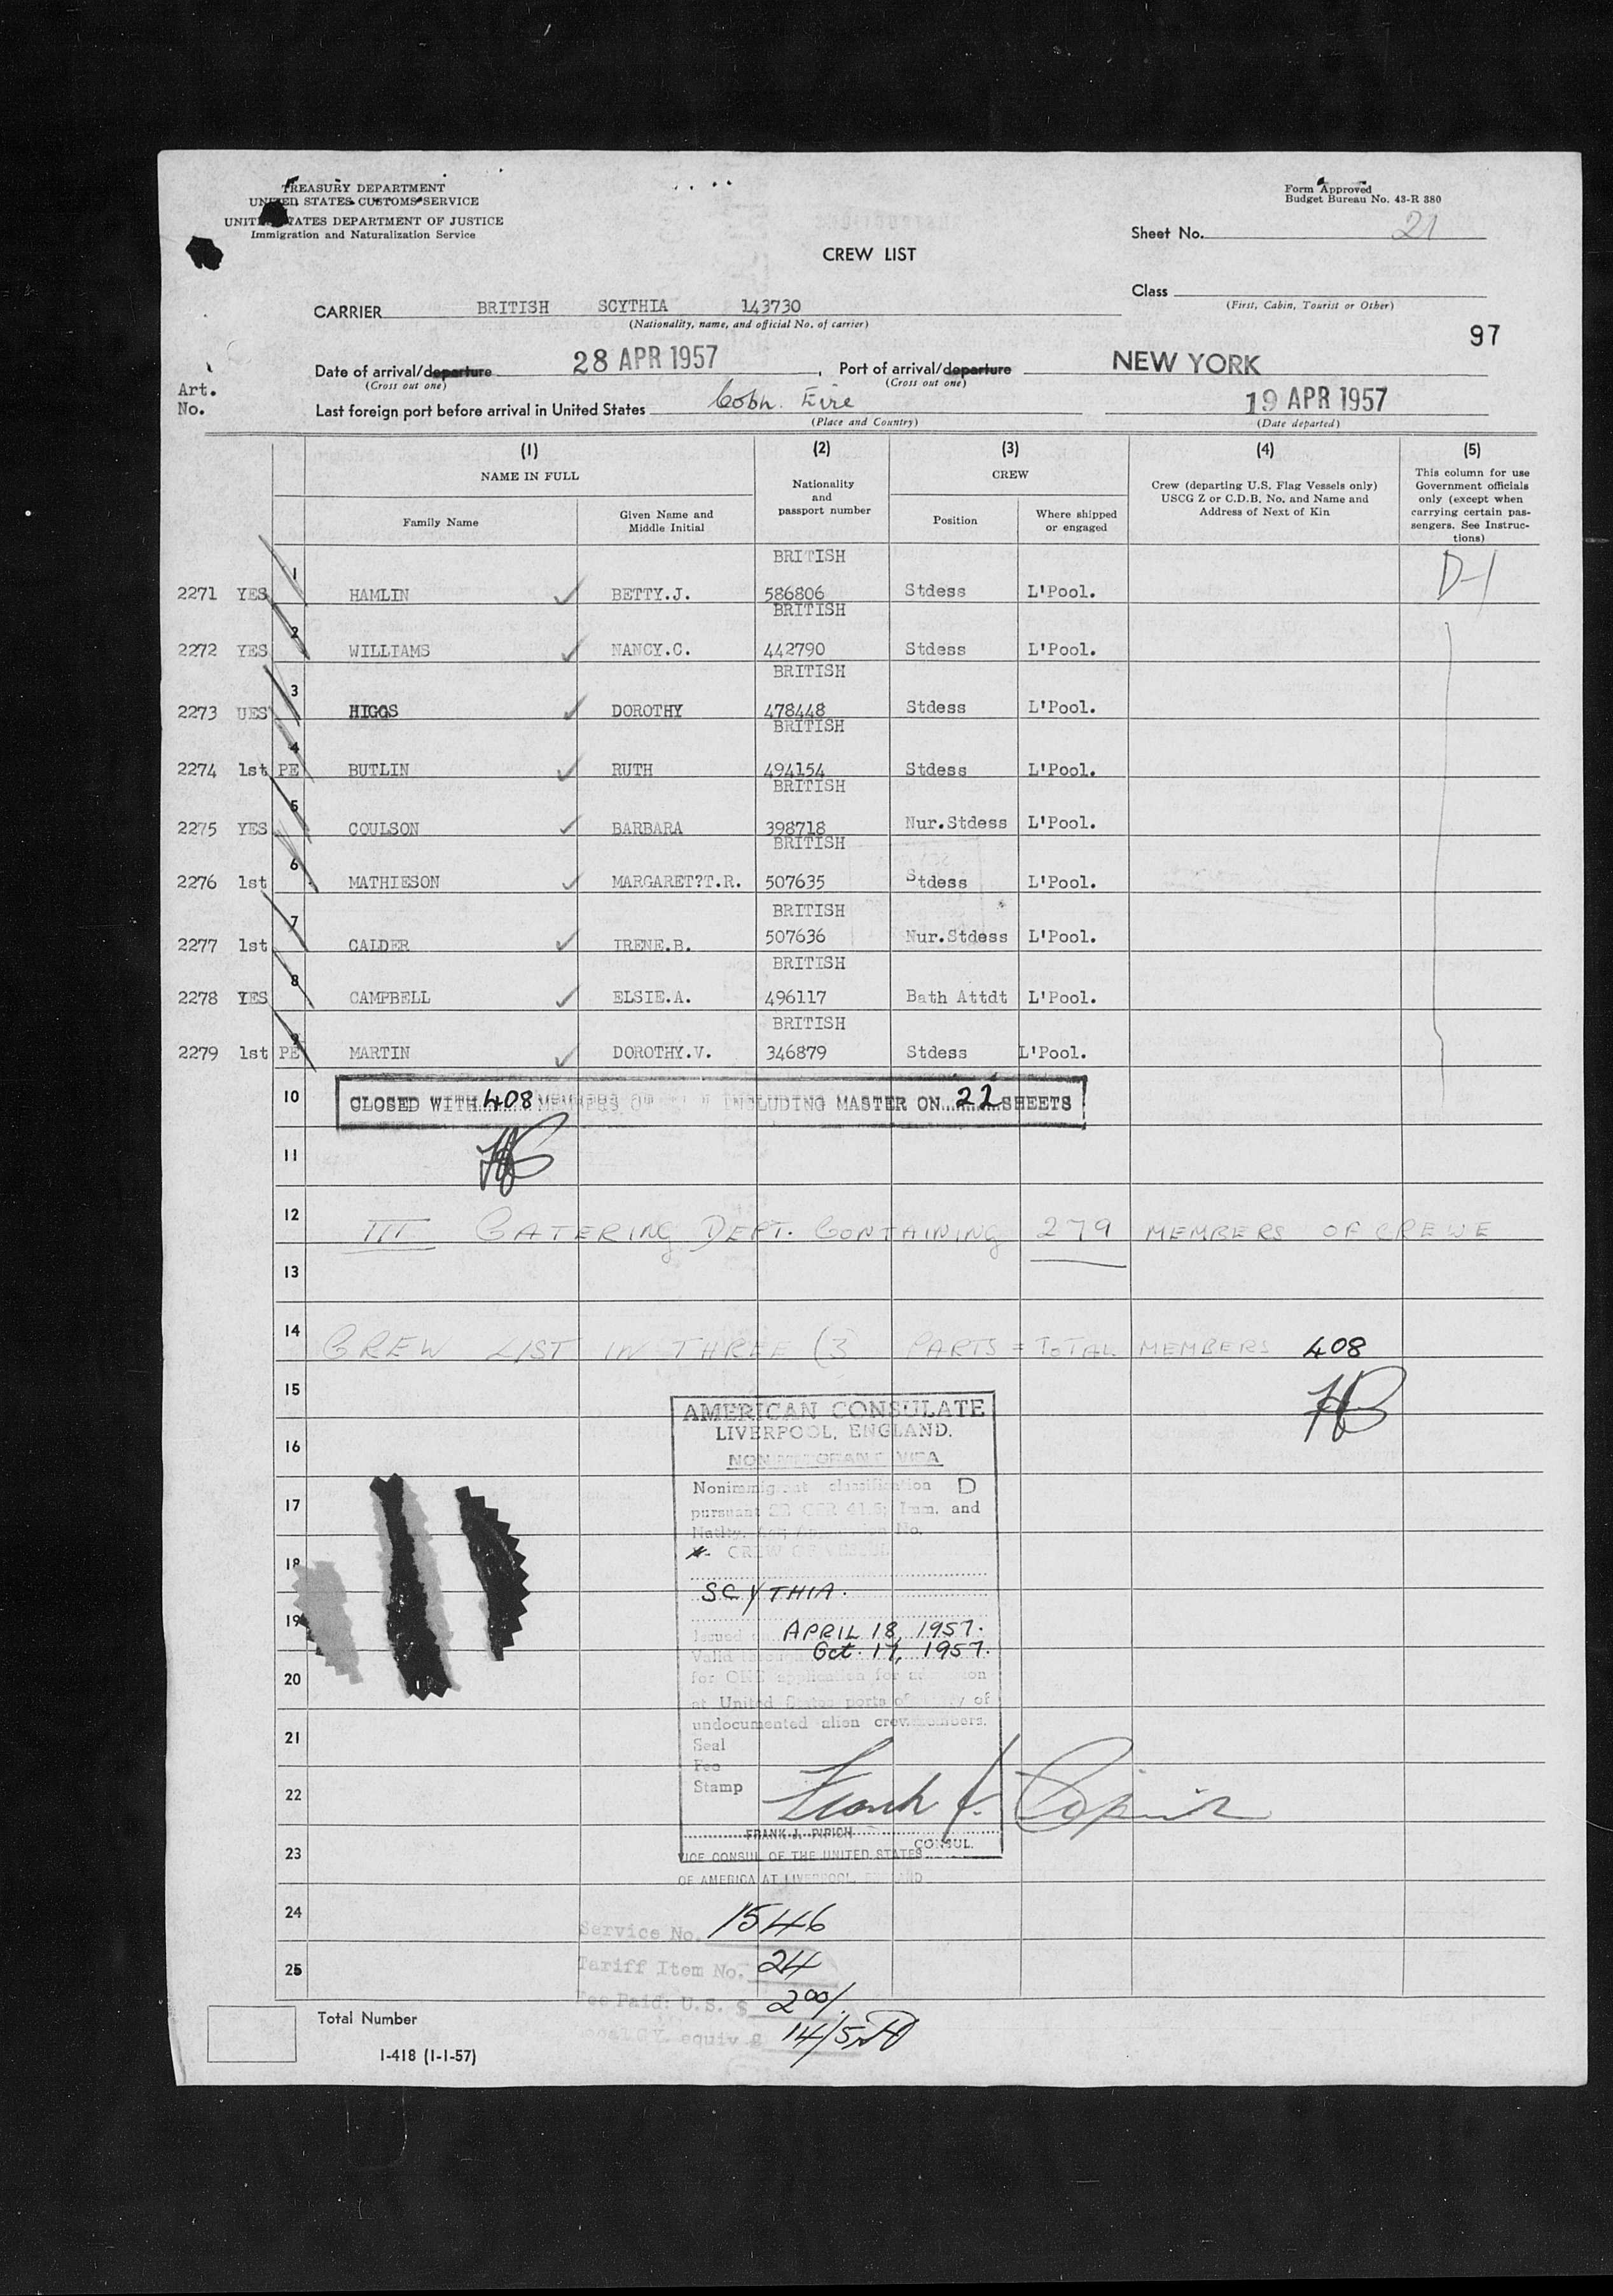 TREASURY DEPARTMENT
UNITED STATES CUSTOMS SERVICE
UNITED STATES DEPARTMENT OF JUSTICE
Immigration and Naturalization Service
Form Approved
Budget Bureau No. 43-R 380
Sheet No. 21
CREW LIST
Class
(First, Cabin, Tourist or Other)
CARRIER BRITISH SCYTHIA 143730
(Nationality, name, and official No. of carrier)
97
Date of arrival/departure 28 APR 1957, Port of arrival/departure NEW YORK
(Cross out one) (Cross out one)
Art.
No.
Last foreign port before arrival in United States Cobh. Eire 19 APR 1957
(Place and Country) (Date departed)
(1) (2) (3) (4) (5)
NAME IN FULL
Nationality and passport number
CREW
Crew (departing U.S. Flag Vessels only) USCG Z or C.D.B. No. and Name and Address of Next of Kin
This column for use Government officials only (except when carrying certain passengers. See Instructions)
Family Name Given Name and Middle Initial Position Where shipped or engaged
BRITISH
2271 YES 1 HAMLIN BETTY.J. 586806 Stdess L'Pool. D-1
BRITISH
2272 YES 2 WILLIAMS NANCY.C. 442790 Stdess L'Pool.
BRITISH
2273 UES 3 HIGGS DOROTHY 478448 Stdess L'Pool.
BRITISH
2274 1st PE 4 BUTLIN RUTH 494154 Stdess L'Pool.
BRITISH
2275 YES 5 COULSON BARBARA 398718 Nur.Stdess L'Pool.
BRITISH
2276 1st 6 MATHIESON MARGARET?T.R. 507635 Stdess L'Pool.
BRITISH
2277 1st 7 CALDER IRENE.B. 507636 Nur.Stdess L'Pool.
BRITISH
2278 YES 8 CAMPBELL ELSIE.A. 496117 Bath Attdt L'Pool.
BRITISH
2279 1st PE 9 MARTIN DOROTHY.V. 346879 Stdess L'Pool.
10 CLOSED WITH 408 MEMBERS OF INCLUDING MASTER ON 22 SHEETS
11
12 III CATERING DEPT. CONTAINING 279 MEMBERS OF CREWE
13
14 CREW LIST IN THREE (3 PARTS = TOTAL MEMBERS 408
15
AMERICAN CONSULATE
LIVERPOOL, ENGLAND.
16
NONIMMIGRANT VISA
Nonimmigrant classification D
17
pursuant 22 CFR 41.5; Imm. and
Natlty. No.
18
CREW OF VESSEL
SCYTHIA.
19
Issued APRIL 18, 1957.
Valid through Oct. 17, 1957.
20
for ONE application for admission
at United States ports of entry of
undocumented alien crewmembers.
21
Seal
Fee
Stamp
22
Frank J. Pirich
FRANK J. PIRICH
CONSUL.
23
VICE CONSUL OF THE UNITED STATES
OF AMERICA AT LIVERPOOL, ENGLAND
24
Service No. 1546
25
Tariff Item No. 24
Fee Paid: U.S. $ 2 00/
equiv 14/5
Total Number
I-418 (1-1-57)